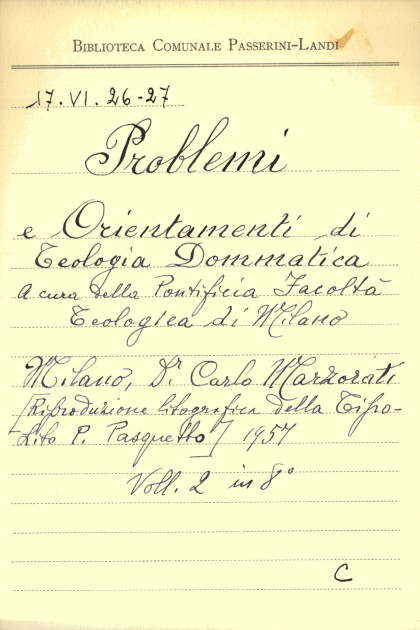 BIBLIOTECA COMUNALE PASSERINI-LANDI
17.VI.26-27
Problemi
e Orientamenti di
Teologia Dommatica
A cura della Pontificia Facoltà
Teologica di Milano
Milano, Dr Carlo Marzorati
[Riproduzione litografica della Tipo-
Lito P. Pasquetto] 1957
Voll. 2 in 8°
C